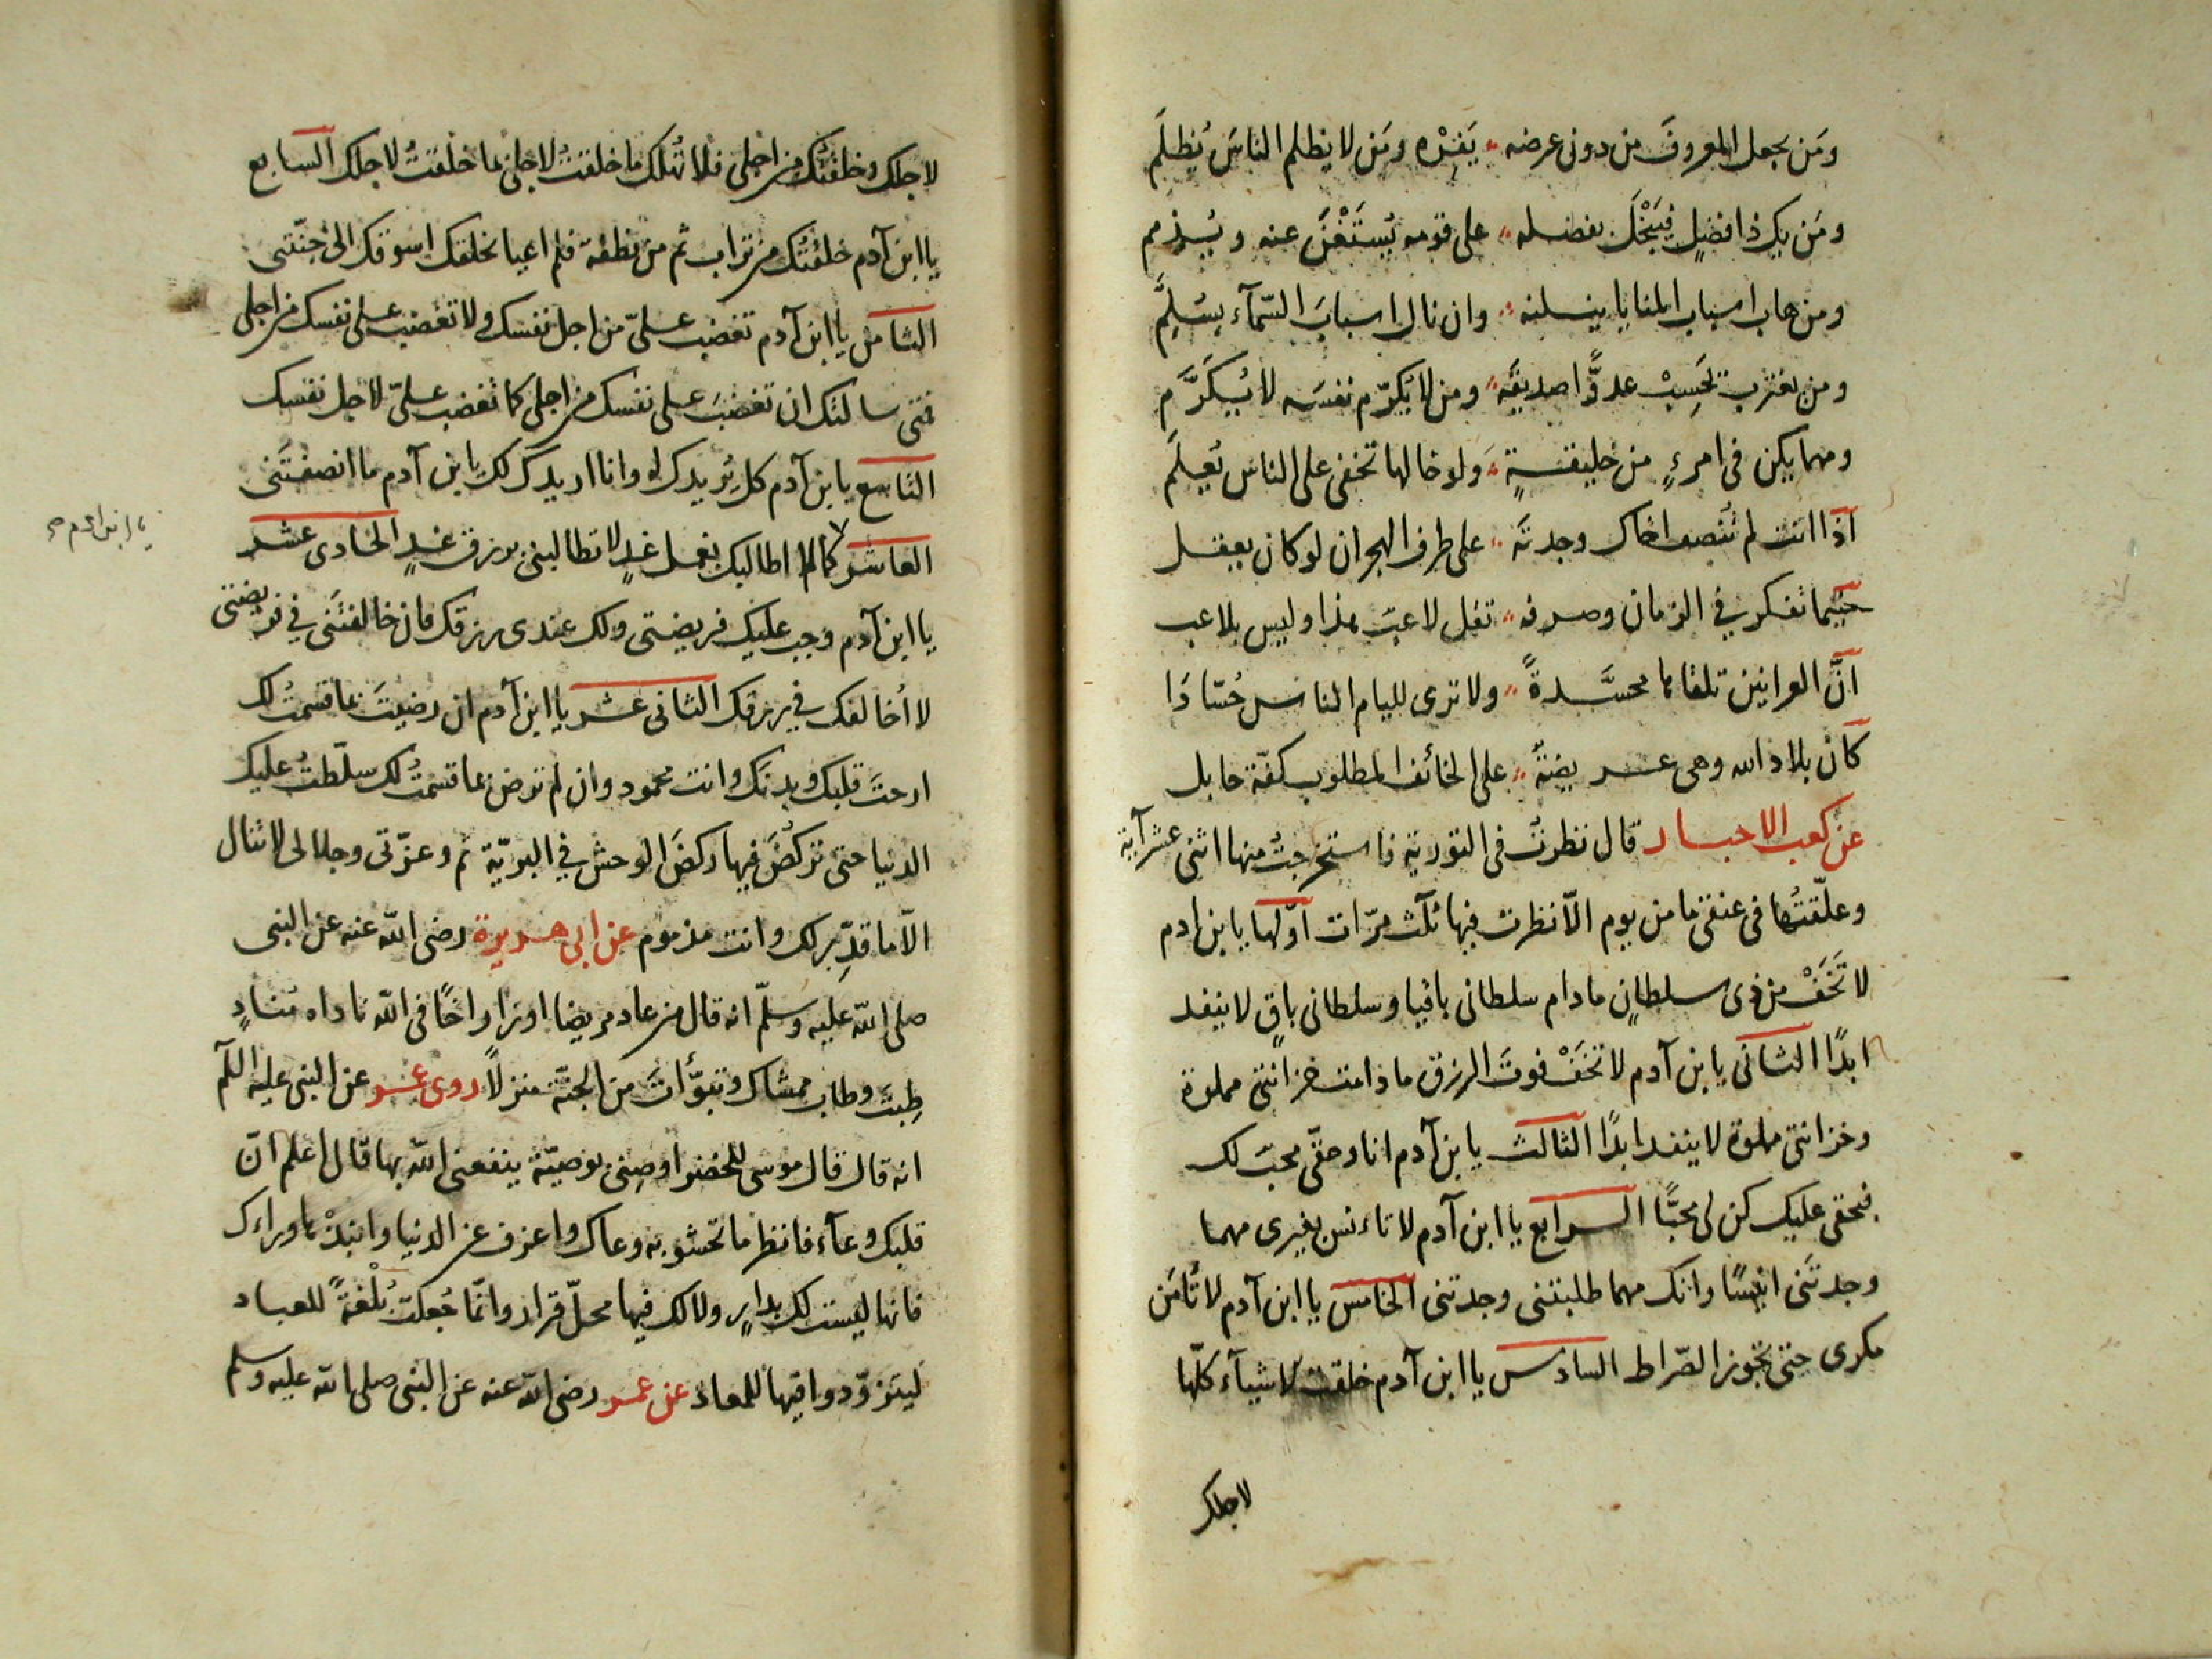 ومَن يجعل المعروفَ من دون عرضه يَفِرْه ومَن لا يظلم الناسَ يُظلَم
ومَن يك ذا فضلٍ فيَبْخَل بفضله على قومه يُستَغْنَ عنه ويُذمم
ومن هاب اسباب المنايا ينلنه وان نال اسبابَ السّمآء بسُلَّم
ومن يغترب يَحسِبْ عدوًّا صديقَه ومن لا يُكرّم نفسَه لا يُكرَّم
ومهما يكن فى امرءٍ من خليقةٍ ولو خالها تخفى على الناس تُعلَم
اذا انت لم تُنصف اخاك وجدتَه على طرف الهجران لو كان يعقل
حيثما تفكر في الزمان وصرفه تقل لاعبٌ هذا وليس بلاعب
انَّ العرانين تلقاها محسَّدةً ولا ترى لليام الناس حُسّادَا
كأن بلاد الله وهى عريضةٌ على الخائف المطلوب كفّة حابل
عن كعب الاحبار قال نظرتُ فى التورية فاستخرجتُ منها اثنى عشر آية
وعلّقتُها فى عنقى ما من يوم الّا نظرت فيها ثلٰث مرّات اوّلها يا بن ادم
لا تَخَفْ من ذى سلطانٍ ما دام سلطانى باقيا وسلطانى باقٍ لا ينفد
ابدًا الثانى يا بن آدم لا تخَفْ فوتَ الرزق ما دامت خزانتى مملوة
وخزانتى مملوة لا ينفد ابدًا الثالث يا بن آدم انا وحقّى محبّ لك
فبحقى عليك كن لى محبًّا الرابع يا ابن آدم لا تاءنس بغيرى مهما
وجدتَنى انيسًا وانك مهما طلبتنى وجدتنى الخامس يا ابن آدم لا تأمَن
مكرى حتى تجوز الصّراط السادس يا ابن آدم خلقت الاشيآء كلّها
لاجلك
لاجلك وخلقتُك من اجلى فلا تُهلك ما خلقتُ لاجلى بما خلقتُ لاجلك السابع
يا ابن آدم خلقتُك من تراب ثم من نطفة فلم اعيا بخلقك اسوقك الى جنّتى
الثامن يا ابن آدم تغضب علىّ من اجل نفسك ولا تغضب على نفسك من اجلى
فمتى سالتك ان تغضبَ على نفسك من اجلى كما تغضب علىّ لاجل نفسك
التاسع يا بن آدم كل يُريدك له وانا اريدك لك يا بن آدم ما انصفتَنى
يا ابن ادم صح
العاشر كما لا اطالبك بعمل غدٍ لا تطالبنى برزق غدٍ الحادى عشر
يا ابن آدم وجب عليك فريضتى ولك عندى رزقك فان خالفتَنى في فريضتى
لا أخالفك في رزقك الثانى عشر يا ابن آدم ان رضيتَ بما قسمتُ لك
ارحتَ قلبك وبدنَك وانت محمود وان لم ترض بما قسمتُ لك سلّطتُ عليك
الدنيا حتى تركُضَ فيها ركضَ الوحش في البريّة ثم وعزّتى وجلالى لا تنال
الّا ما قدِّر لك وانت مذموم عن ابى هريرة رضى اللّه عنه عن النبى
صلى اللّه عليه وسلّم انه قال من عاد مريضا او زار اخًا فى اللّه ناداه منادٍ
طِبتَ وطاب ممشاك وتبوّأتَ من الجنّة منزلًا روى عمر عن النبى عليه اللّم
انه قال قال موسى للخضر اوصِنى بوصيّة ينفعنى اللّه بها قال اعلم انّ
قلبك وعآء فانظر ما تحشو به وعاك واعزف عن الدنيا وانبِذْها وراءك
فانها ليست لك بدارٍ ولا لك فيها محلّ قرار وانّما جُعلت بُلْغةً للعباد
ليتزوّدوا فيها للمعاد عن عمر رضى اللّه عنه عن النبى صلى اللّه عليه وسلم